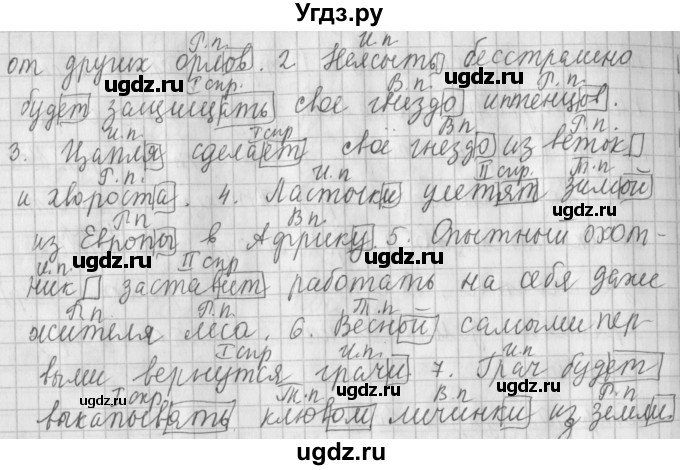 Угдз.ру
Р.п. И.п.
от других орлов. 2 Неясыть бесстрашно
I спр. В.п. Р.п.
будет защищать своё гнездо и птенцов.
И.п. I спр В.п Р.п.
3. Цапля сделает своё гнездо из веток
Р.п. И.п. II спр. Т.п
и хвороста. 4. Ласточки улетят зимой
Р.п В.п
из Европы в Африку. 5. Опытный охот-
и.п. II спр
ник заставит работать на себя даже
Р.п Р.п. Т.п
жителя леса. 6. Весной самыми пер-
I спр И.п. И.п
выми вернутся грачи 7. Грач будет
I спр. Т.п В.п Р.п
выкапывать клювом личинки из земли.
ugdz.ru
ugdz.ru
ugdz.ru
ugdz.ru
ugdz.ru
ugdz.ru
ugdz.ru
ugdz.ru
ugdz.ru
ugdz.ru
ugdz.ru
ugdz.ru
ugdz.ru